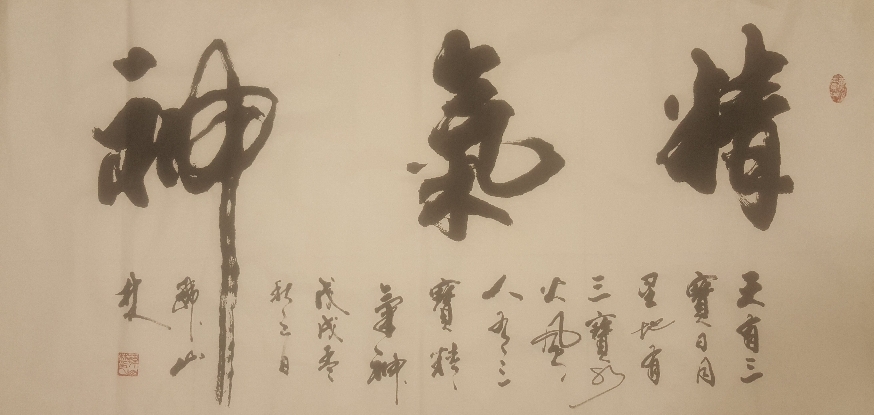 精氣神
天有三
寶日月
星地有
三寶水
火風、
人有三
寶精、
氣神、
戊戌季
秋之日
山